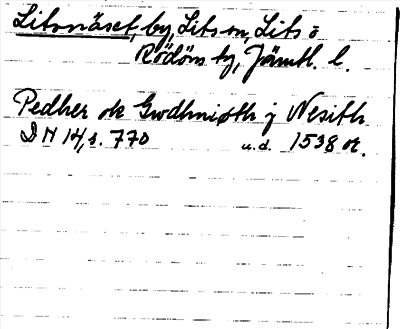 Litsnäset, by, Lits sn, Lits o
Rödöns tg, Jämtl. l.
Pedher ok Gwdhniøth j Nesith
DN 14, s. 770 u.d. 1538 or.